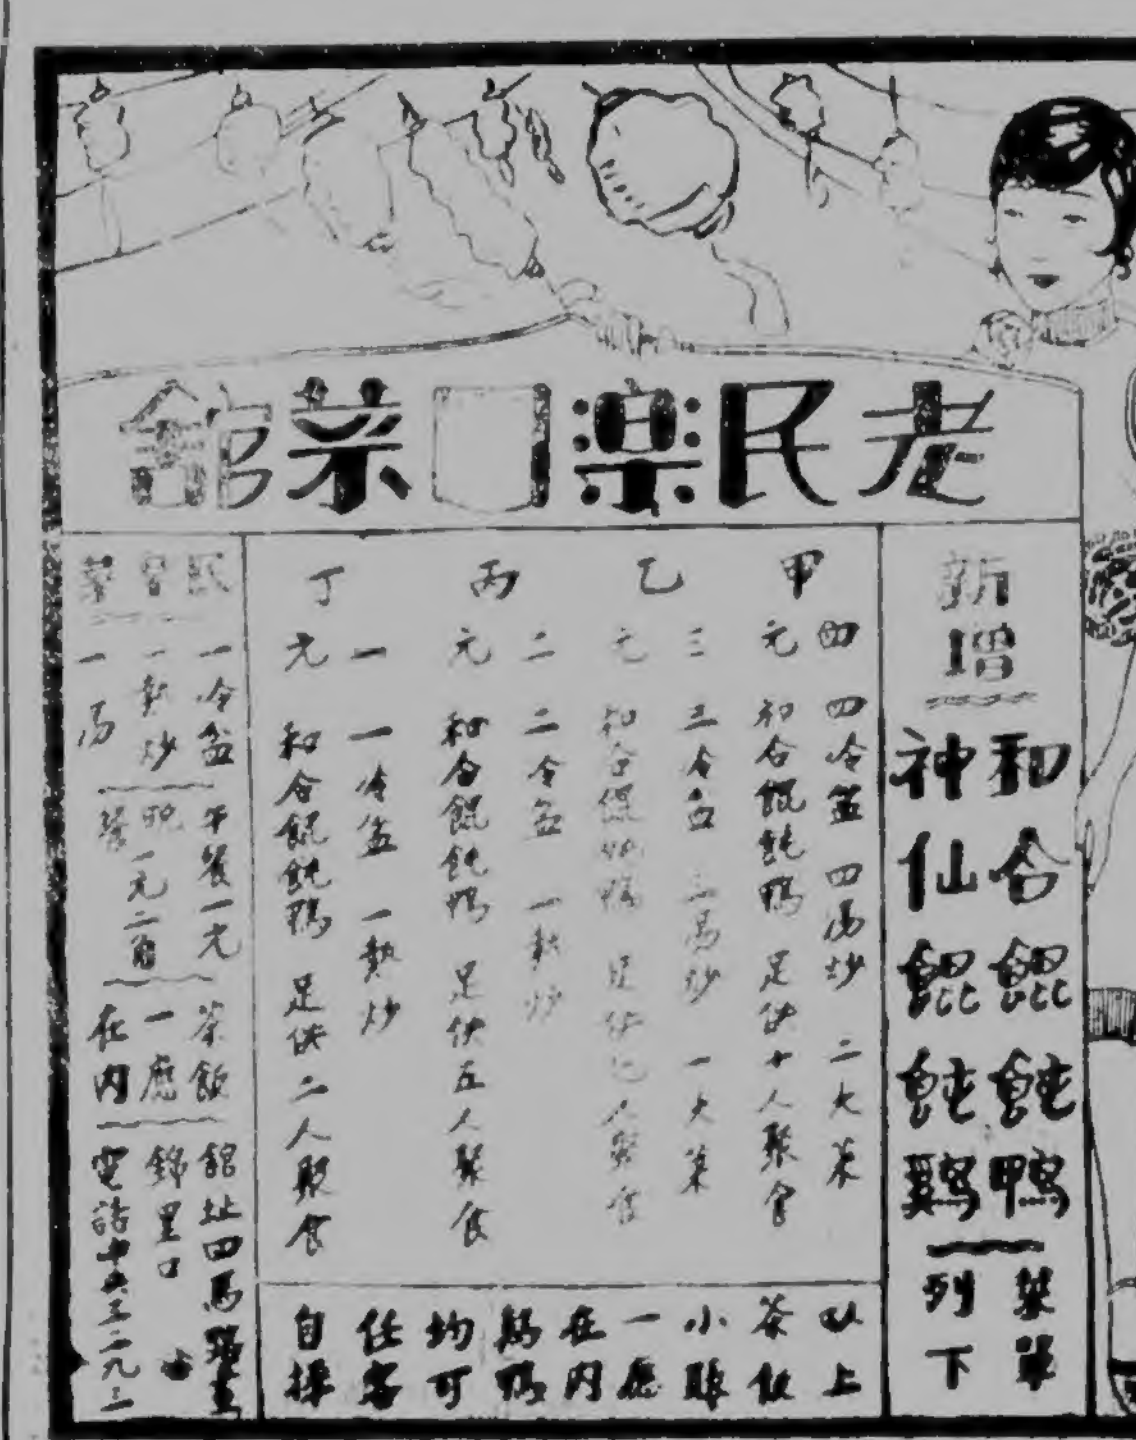 老民樂園菜館
新增
和合餛飩鴨
神仙餛飩鷄
菜單
列下
甲
四
元
四冷盆 四馬炒 二大菜
和合餛飩鴨 足供十人聚食
乙
三
元
三冷盆 二馬炒 一大菜
和合餛飩鴨 足供 人聚食
丙
二
元
二冷盆 一熱炒
和合餛飩鴨 足供五人聚食
丁
一
元
一冷盆 一熱炒
和合餛飩鴨 足供二人聚食
以上
茶飯
小賬
一應
在内
鷄鴨
均可
任客
自擇
一冷盆
一熱炒
一
午餐一元
晚餐一元二角
茶飯
一應
在内
館址四馬路畫錦里口
電話中央三二九三